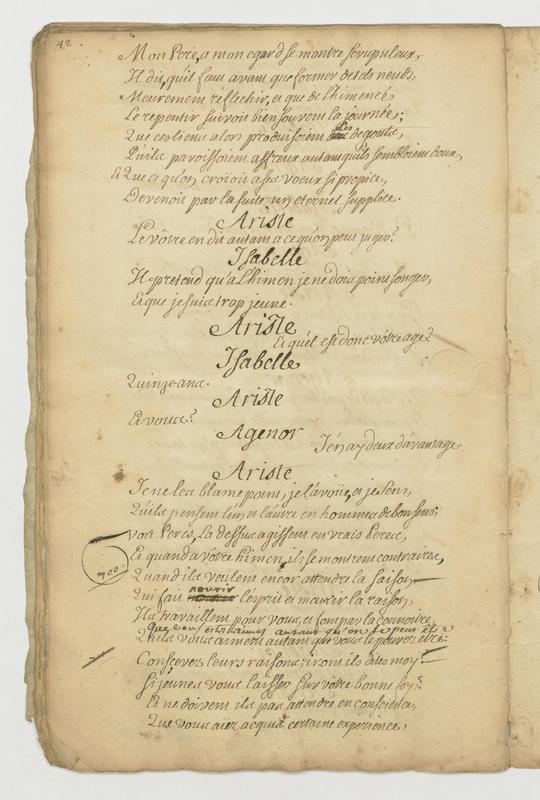 42.
Mon Pere, a mon egard se montre scrupuleux,
Il dit, qu'il faut avant que former de tels neuds,
Meurement réflechir, et que de l'himenée,
Le repentir suivoit bien souvent la journée;
Que ces liens alors produisoient des degouts,
Qu'ils paroissoient affreux autant qu'ils sembloient doux,
Et Que ce qu'on croioit a ses voeux si propice,
Devenoit par la suite un eternel supplice.
Ariste
Le vôtre en dit autant a ce qu'on peut juger?
Isabelle
Il pretend qu'a l'himen je ne dois point songer,
Et que je suis trop jeune.
Ariste
Et quel est donc vôtre age?
Isabelle
Quinze ans.
Ariste
Et vous?
Agenor
J'én ay deux d'avantage
Ariste
Je ne les blame point, je l'avoüe, et je sens,
Qu'ils pensent l'un et l'autre en hommes de bon sens;
vos Peres, la dessus agissent en vrais Peres,
Et quand a vôtre himen, ils se montrent contraires,
Quand ils veulent encor attendre la saison,
700.
Qui fait nourir l'esprit et meurir la raison,
Ils travaillent pour vous, et font par la connoitre,
Que vous estes aimés autant qu'on le peut être
Qu'ils vous aiment autant que vous le pouvez etre:
Concevez leurs raisons; iront ils dites moy?
Si jeunes vous laisser sur vôtre bonne foy?
Et ne doivent ils pas attendre en conscience,
Que vous aiez acquis certaine experience,